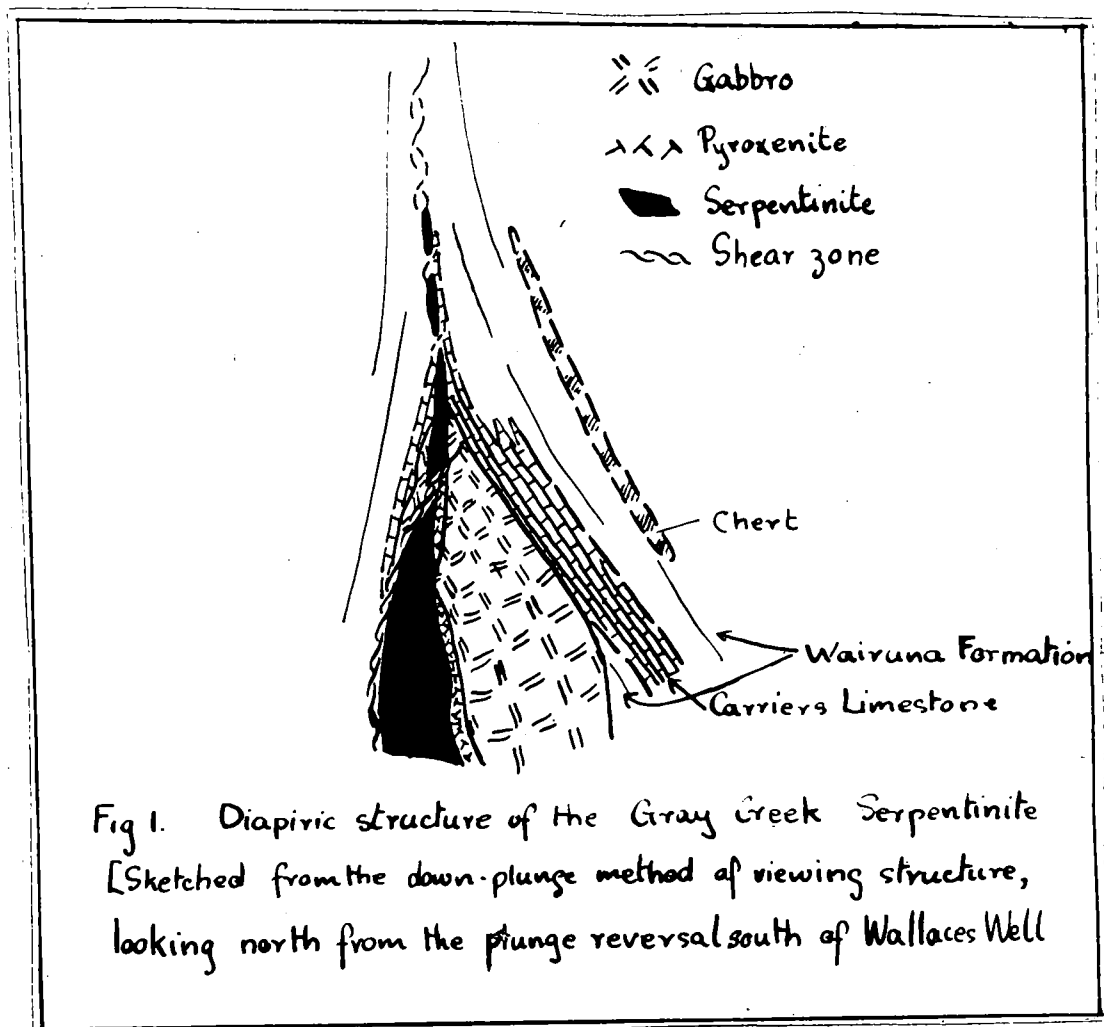 Gabbro
Pyroxenite
Serpentinite
Shear zone
Chert
Wairuna Formation
Carriers Limestone
Fig 1. Diapiric structure of the Gray Creek Serpentinite
[Sketched from the down-plunge method of viewing structure,
looking north from the plunge reversal south of Wallaces Well